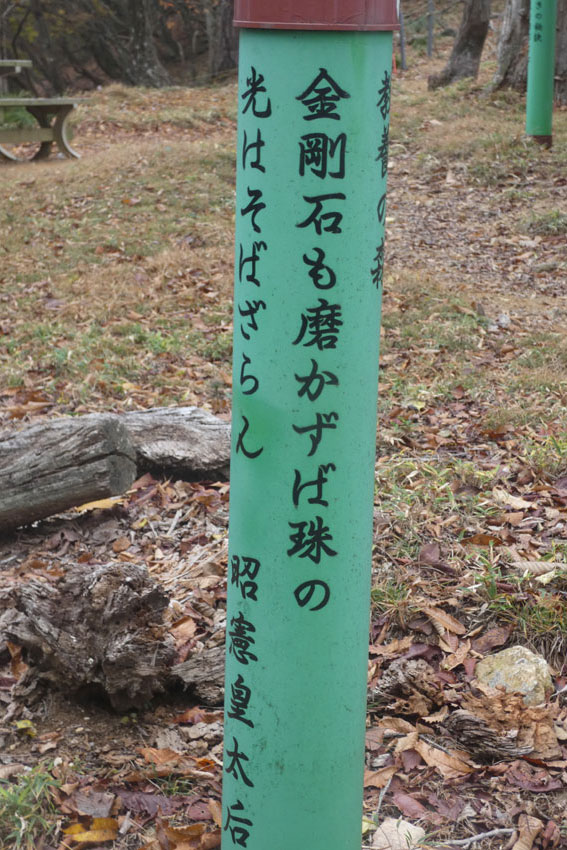 金剛石も磨かずば珠の
光はそばざらん
昭憲皇太后